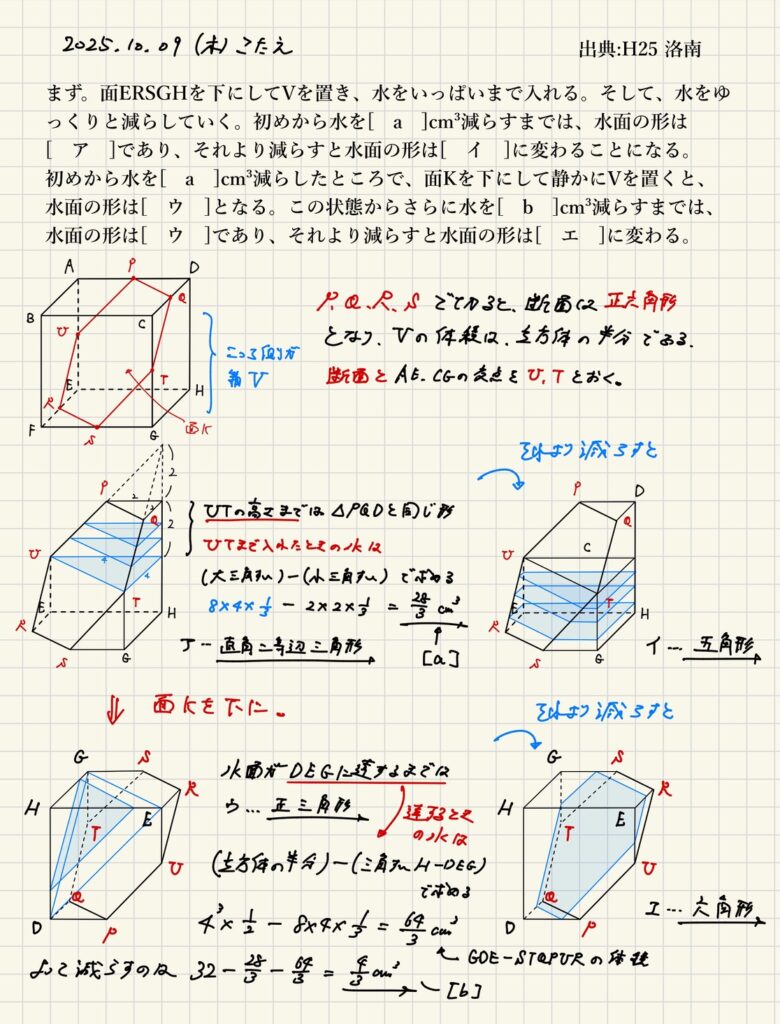 2025.10.09 (木) こたえ
出典:H25 洛南
まず。面ERSGHを下にしてVを置き、水をいっぱいまで入れる。そして、水をゆ
っくりと減らしていく。初めから水を[ a ]cm³減らすまでは、水面の形は
[ ア ]であり、それより減らすと水面の形は[ イ ]に変わることになる。
初めから水を[ a ]cm³減らしたところで、面Kを下にして静かにVを置くと、
水面の形は[ ウ ]となる。この状態からさらに水を[ b ]cm³減らすまでは、
水面の形は[ ウ ]であり、それより減らすと水面の形は[ エ ]に変わる。
A P D
B C Q
U
E T H
R
F S G
面K
こっち側が
着V
P,Q,R,Sで切ると、断面は正六角形
となり、Vの体積は、立方体の半分である。
断面とAE、CGの交点をU,Tとおく。
それより減らすと
2
2
P 2 2
Q 2
U 4 4
E T H
R S G
UTの高さまでは△PQDと同じ形
UTまで入れたときの水は
(大三角すい)-(小三角すい)で求める
8×4×1/3 - 2×2×1/3 = 28/3 cm³
[a]
ア… 直角二等辺三角形
P D
Q
U C
E T H
R S G
イ… 五角形
⇓ 面Kを下に。
それより減らすと
G S
H E R
T
U
Q
D P
水面がDEGに達するまでは
ウ… 正三角形
達するとき
の水は
(立方体の半分)-(三角すいH-DEG)
で求める
4³×1/2 - 8×4×1/3 = 64/3 cm³
GDE-STQPURの体積
よって減らすのは 32 - 28/3 - 64/3 = 4/3 cm³
[b]
G S
H E R
T
U
Q
D P
エ… 六角形